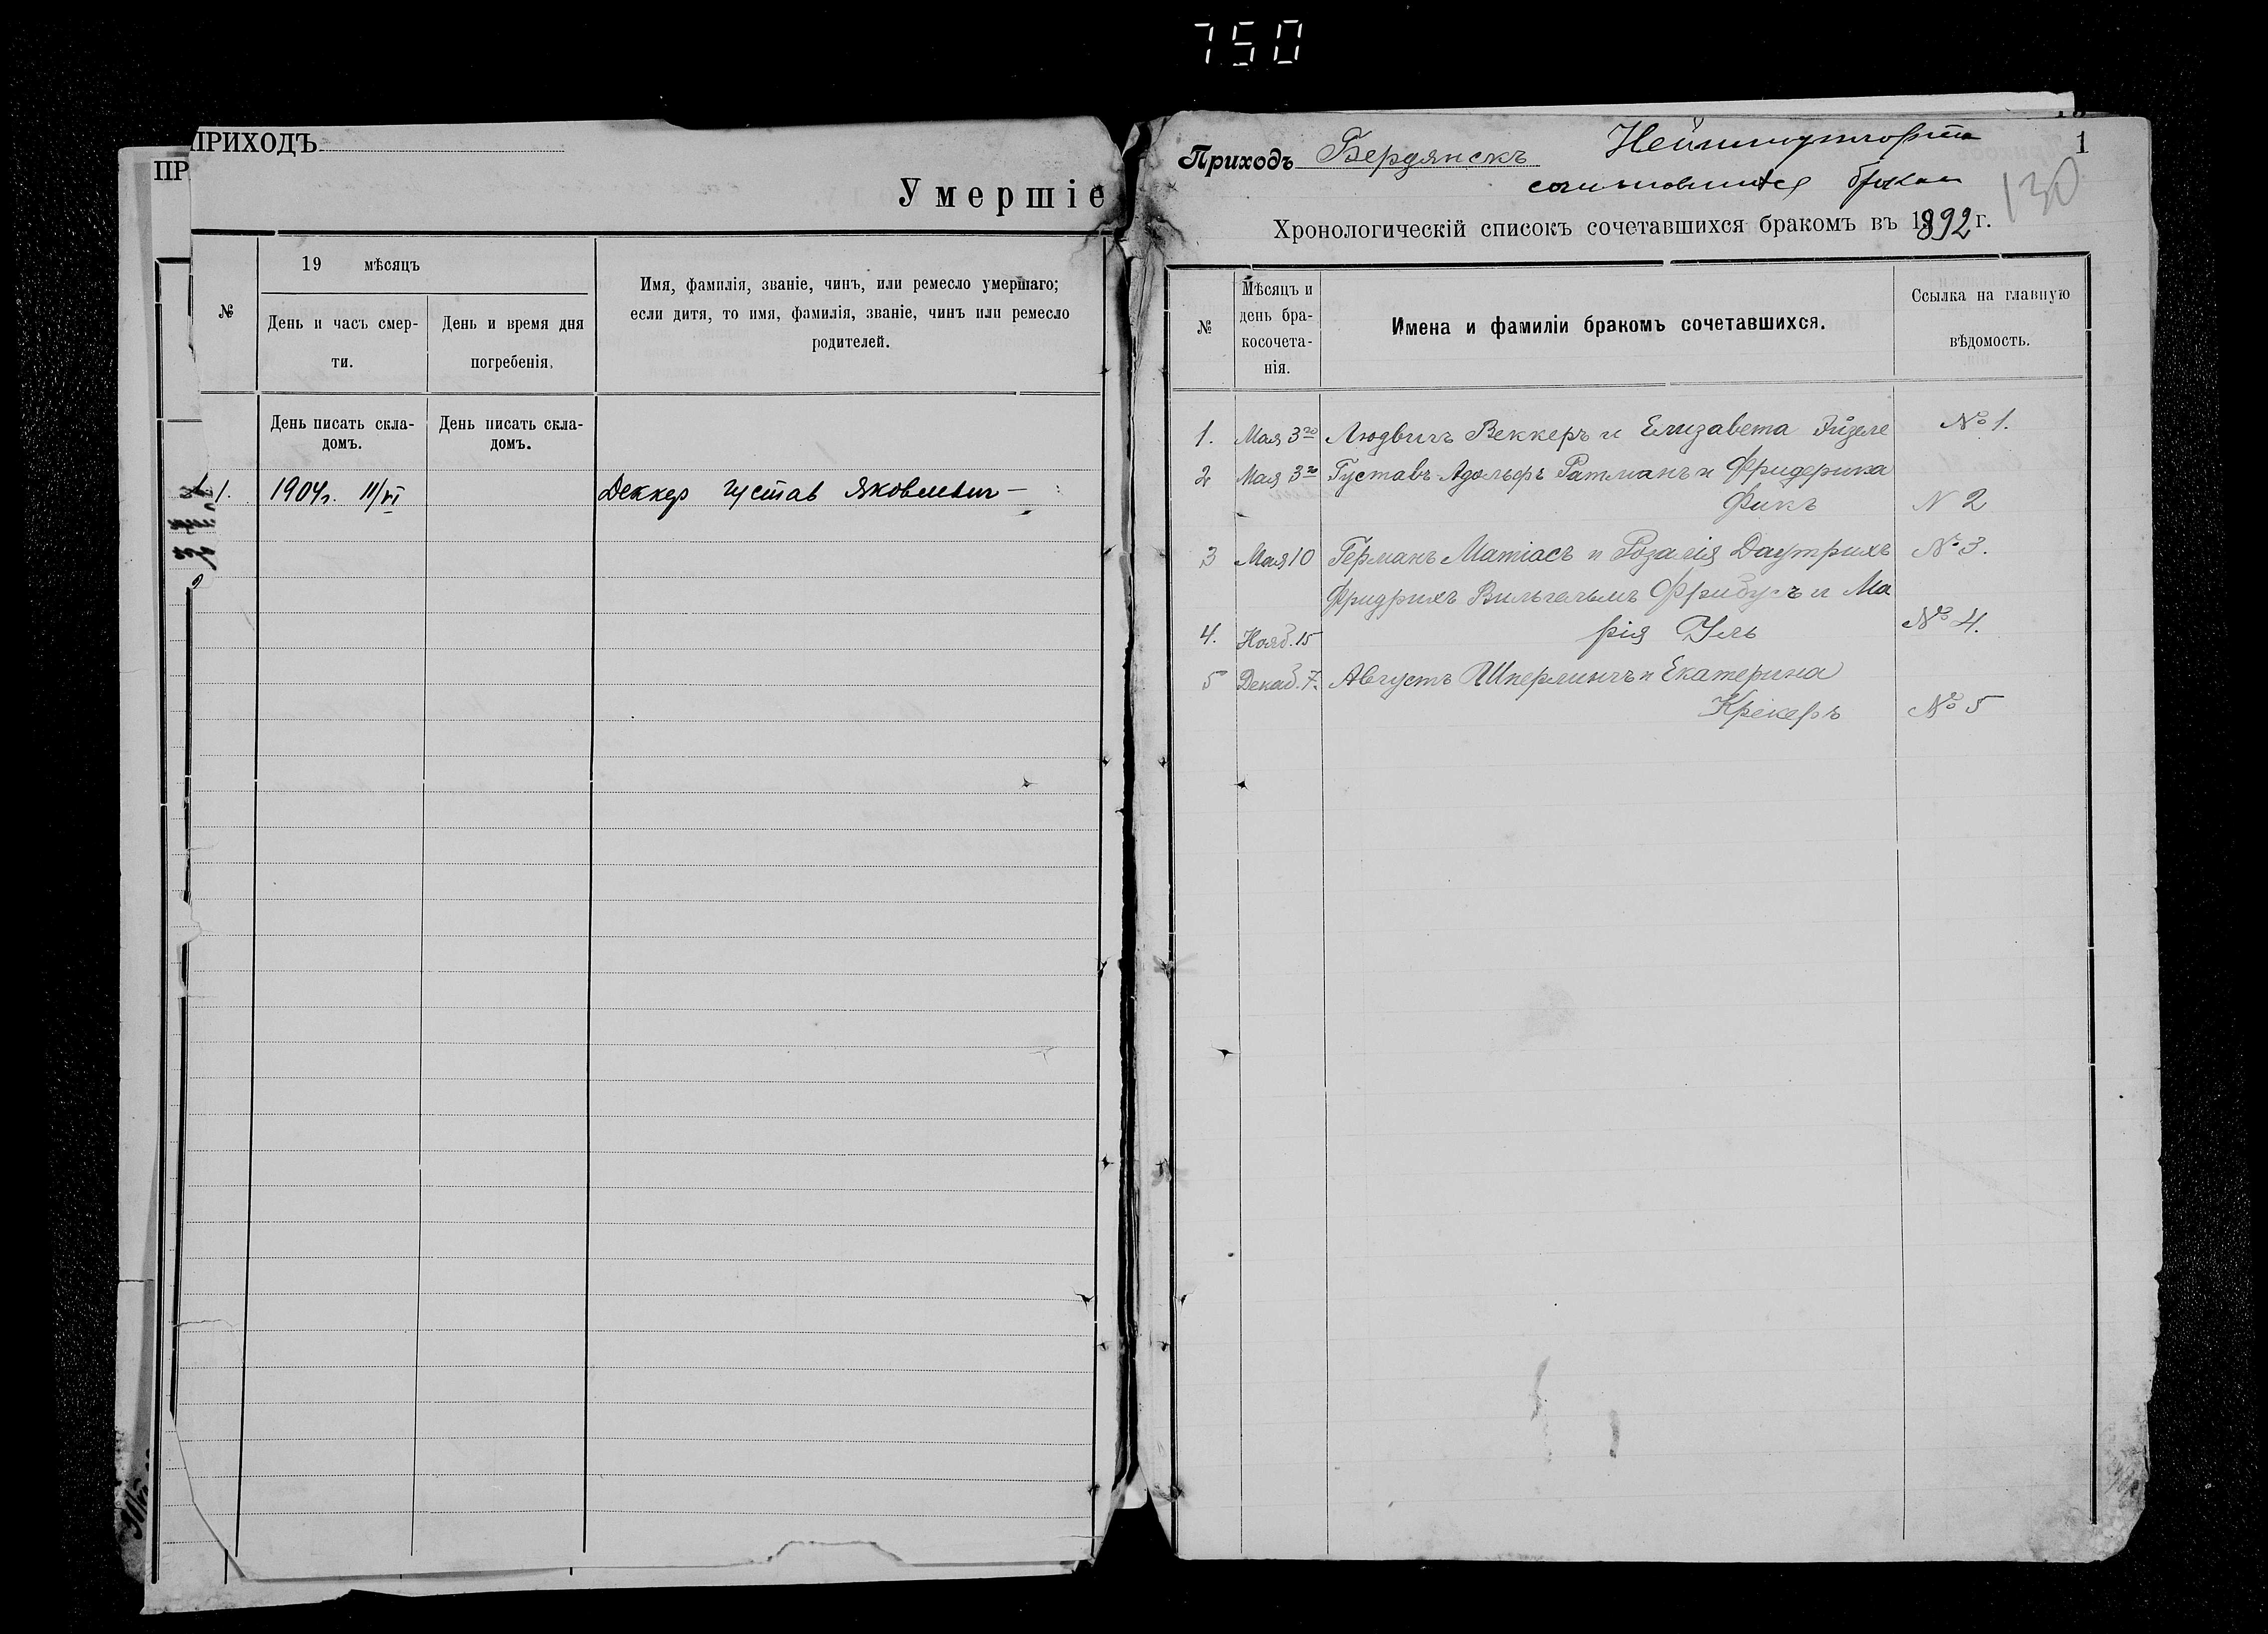 750
ПРИХОДЪ
ПР
Умершіе
№
19 мѣсяцъ
День и часъ смер-
ти.
День и время дня
погребенія.
Имя, фамилія, званіе, чинъ, или ремесло умершаго;
если дитя, то имя, фамилія, званіе, чинъ или ремесло
родителей.
День писать скла-
домъ.
День писать скла-
домъ.
1. 1904г. 11/VI Деккер Густав Яковлевич —
Приходъ Бердянскъ
1
130
Хронологическій списокъ сочетавшихся бракомъ въ 1892 г.
№
Мѣсяцъ и
день бра-
косочета-
нія.
Имена и фамиліи бракомъ сочетавшихся.
Ссылка на главную
вѣдомость.
1. Мая 3го Людвигъ Веккеръ и Елизавета № 1.
2 Мая 3го Густавъ Адольфъ Ратманъ и Фридерика
Фикъ N 2
3 Мая 10 Германъ Матіасъ и Розалія Даутрихъ № 3.
Фридрихъ Вильгельмъ и Ма
4. Нояб. 15 рія № 4.
5 Декаб. 7. Августъ Шперлингъ и Екатерина
Крекеръ № 5